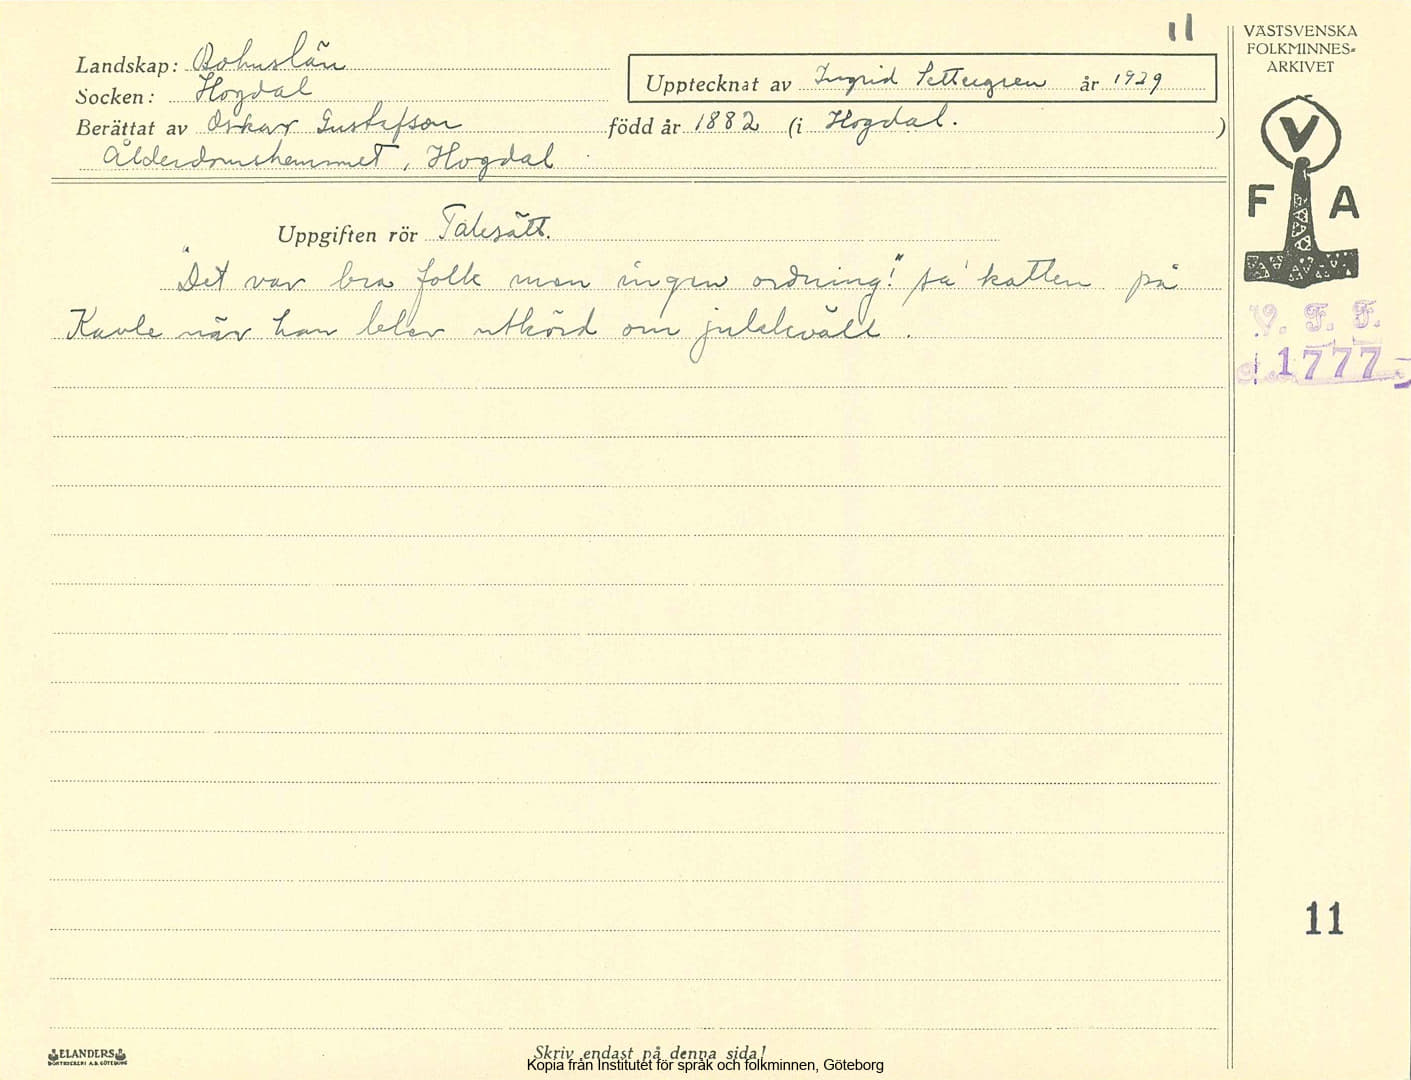 11
VÄSTSVENSKA
FOLKMINNES-
ARKIVET
Landskap: Bohuslän
Socken: Hogdal
Upptecknat av Ingrid Settergren år 1929
Berättat av Oskar Gustafson född år 1882 (i Hogdal.)
Ålderdomshemmet, Hogdal
V
F A
Uppgiften rör Talesätt.
"Det var bra folk men ingen ordning!" sa' katten på
Kavle när han blev utkörd om julekväll.
V. F. F.
1777
11
ELANDERS
BOKTRYCKERI A.B. GÖTEBORG
Skriv endast på denna sida!
Kopia från Institutet för språk och folkminnen, Göteborg